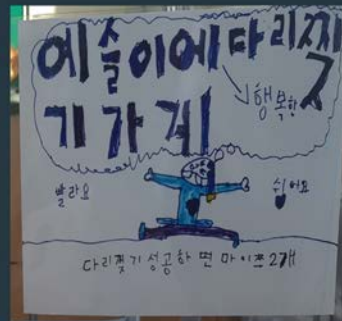 예슬이에 다리찢
기 가게!
행복한
빨라요
쉬어요
다리찢기 성공하면 마이쯔 2개